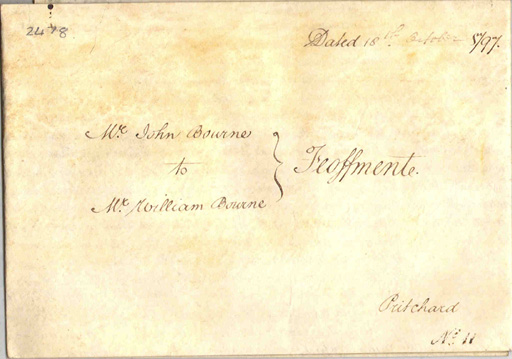 2478
Dated 18th October 1797.
Mr. John Bourne
to
Mr. William Bourne
Feoffment.
Pritchard
No. 11